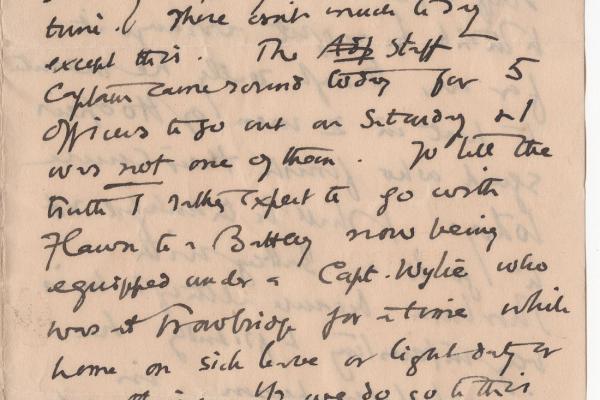 time. There isn't much to say
except this. The Adj Staff
Captain came round today for 5
officers to go out on Saturday & I
was not one of them. To tell the
truth I rather expect to go with
Hawn to a Battery now being
equipped under a Capt. Wylie who
was at Trowbridge for a time while
home on sick leave or light duty or
we do go to this